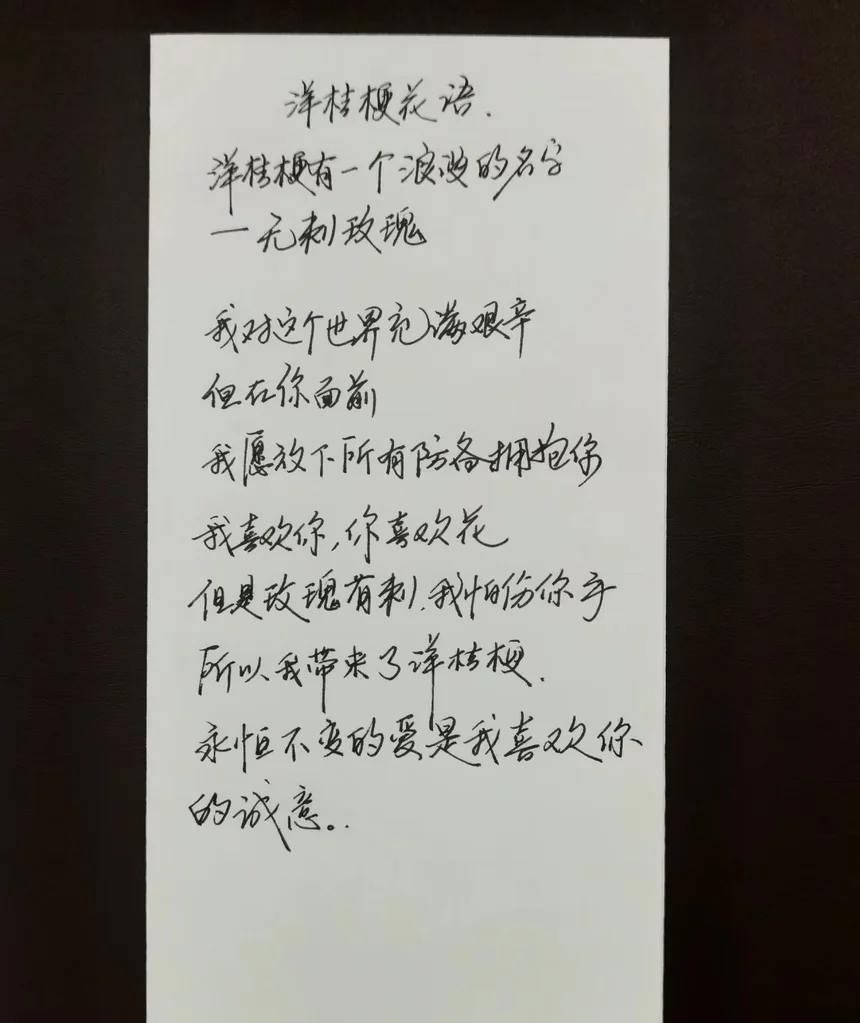 洋桔梗花语.
洋桔梗有一个浪漫的名字
一无刺玫瑰
我对这个世界充满艰辛
但在你面前
我愿放下所有防备拥抱你
我喜欢你,你喜欢花
但是玫瑰有刺.我怕伤你手
所以我带来了洋桔梗.
永恒不变的爱是我喜欢你
的诚意。.